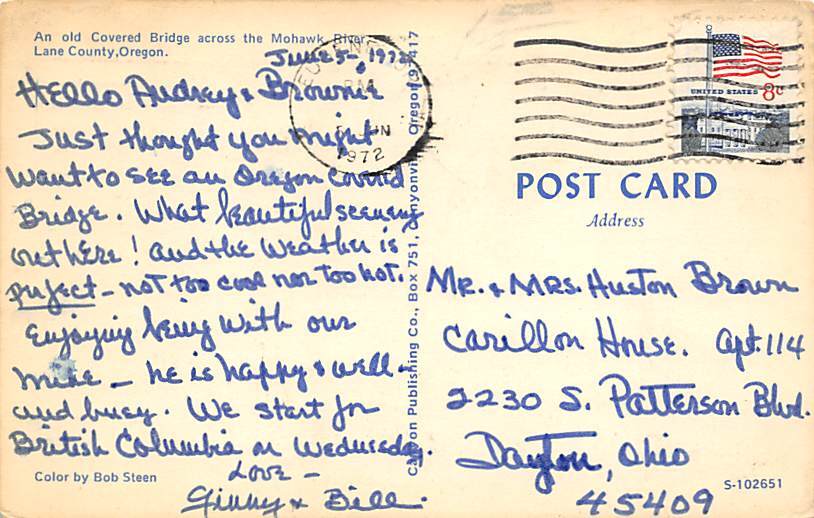 An old Covered Bridge across the Mohawk River
Lane County, Oregon.
June 5- 1972
Hello Audrey & Brownie
Just thought you might
want to see an Oregon Covered
Bridge. What beautiful scenery
out here! and the weather is
perfect - not too cool nor too hot.
Enjoying being with our
Mike - he is happy & well -
and busy. We start for
British Columbia on Wednesday.
Love -
Ginny & Bill.
Color by Bob Steen
Publishing Co., Box 751, Canyonville, Oregon 97417
EUGENE
PM
JUN
1972
UNITED STATES
8c
POST CARD
Address
Mr. & Mrs. Huston Brown
Carillon House. Apt. 114
2230 S. Patterson Blvd.
Dayton, Ohio
45409
S-102651